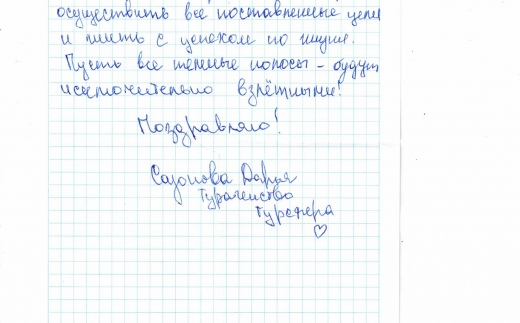 осуществить все поставленные цели
и плыть с успехом по жизни.
Пусть все темные полосы - будут
исключительно взлётными!
Поздравляю!
Сазонова Дарья
Турагентство
Турсфера
♡